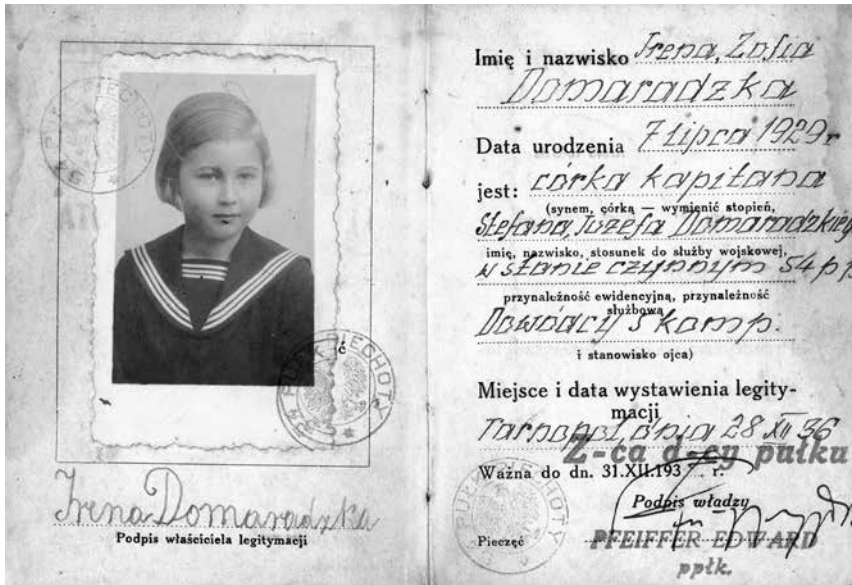 54 PUŁK PIECHOTY
ć
54 PUŁK PIECHOTY
Irena Domaradzka
Podpis właściciela legitymacji
Imię i nazwisko Irena, Zofia
Domaradzka
Data urodzenia 7 lipca 1929 r
jest: córka kapitana
(synem, córką — wymienić stopień,
Stefana, Józefa Domaradzkiego
imię, nazwisko, stosunek do służby wojskowej,
w stanie czynnym 54 p p
przynależność ewidencyjną, przynależność
służbową
Dowódcy 5 komp.
i stanowisko ojca)
Miejsce i data wystawienia legity-
macji
Tarnopol, dnia 28 XII 36
Z-ca d-cy pułku
Ważna do dn. 31.XII.193 r.
Podpis władzy
Pieczęć
PUŁK PIECHOTY
PFEIFFER EDWARD
ppłk.